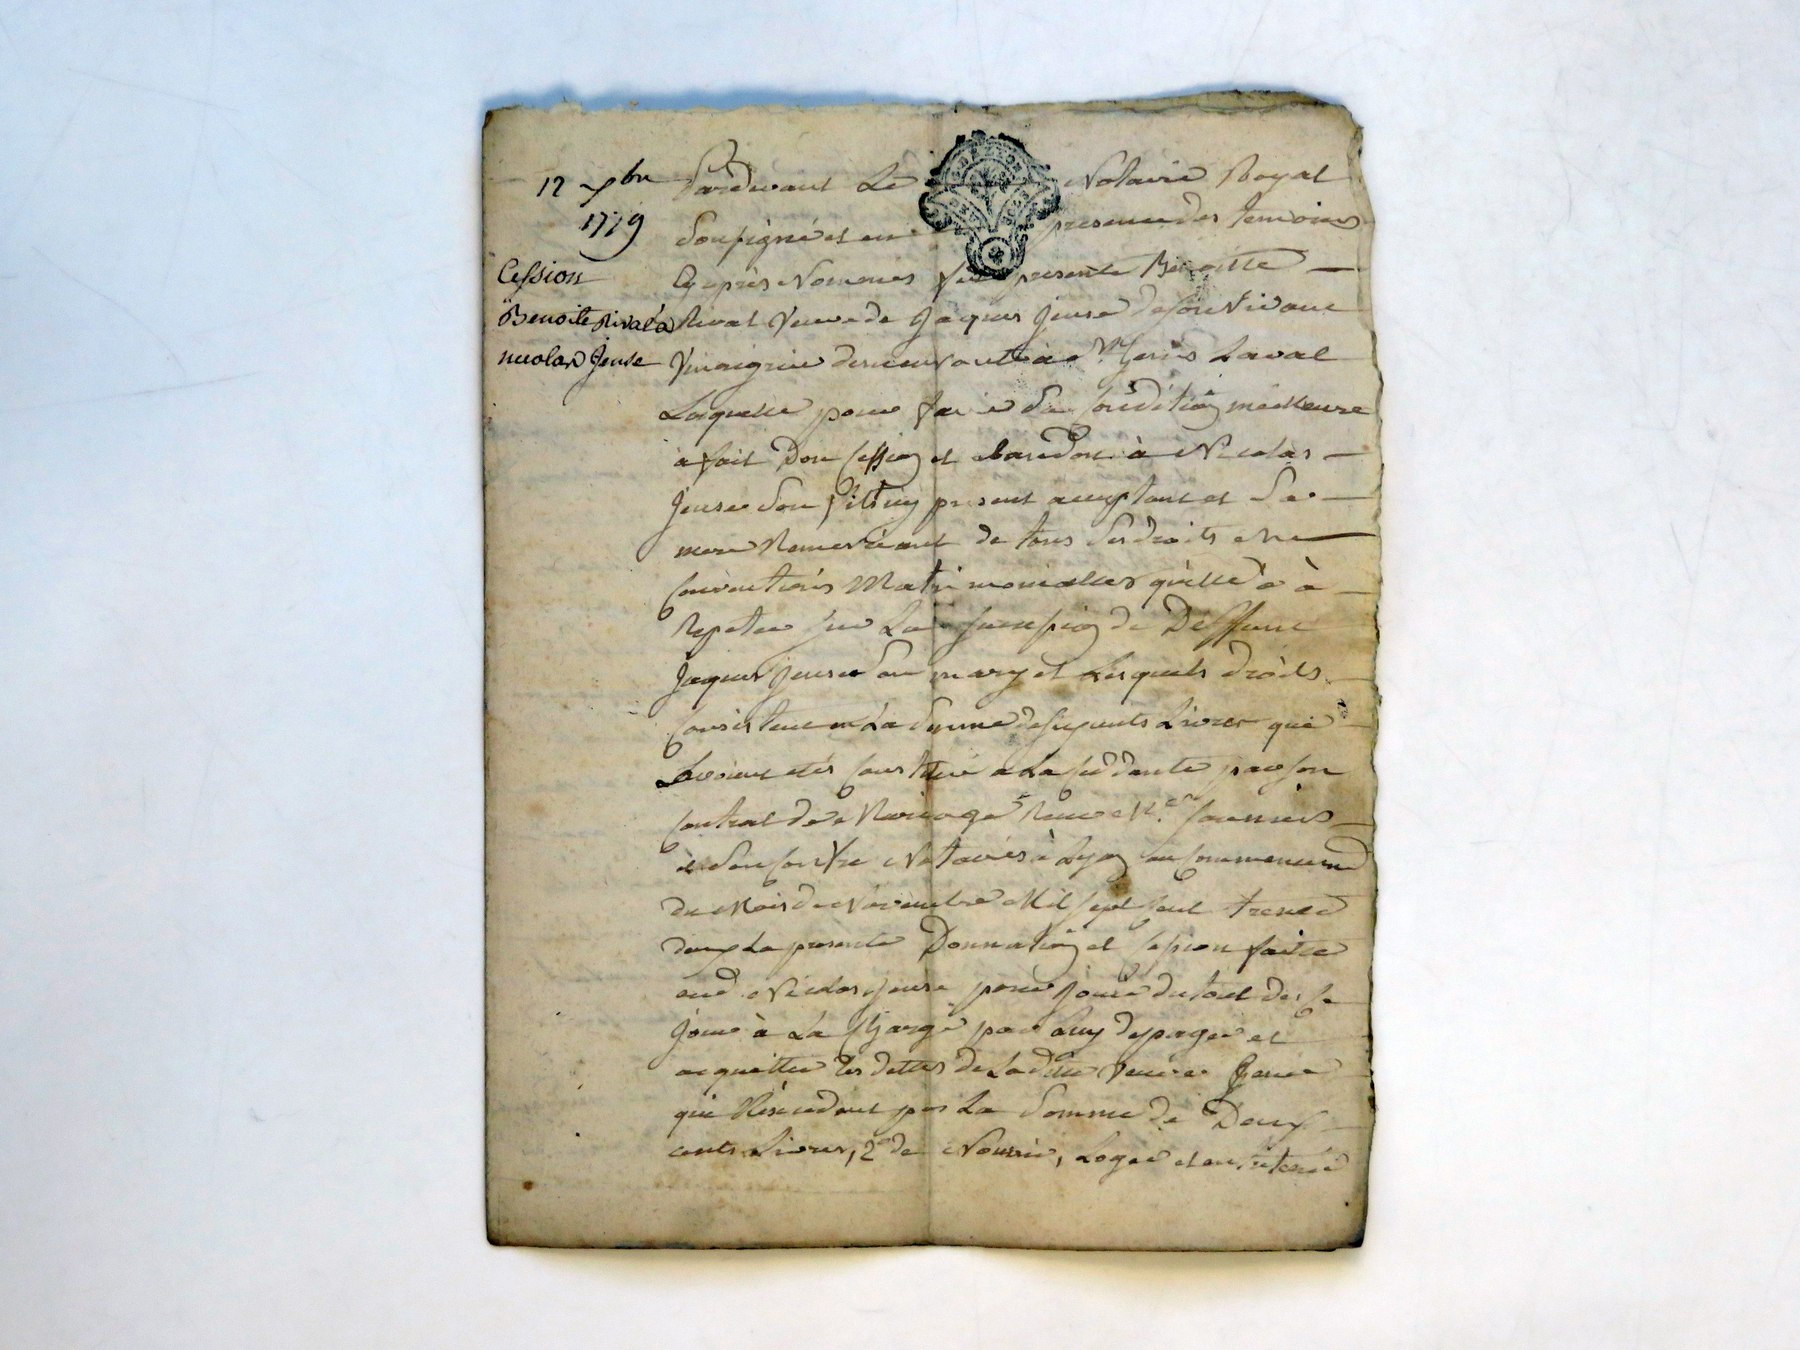 12 xbre
1779
Cession
Benoite Rival à
nicolas Jeuse
Pardevant Le Notaire Royal
Soussigné et en presence des temoins
Cy après Nommés fut presente Benoitte
Rival Veuve de Jaques Jeuse de son Vivant
Vinaigrier demeurant à Laval
Laquelle pour faire Sa Condition meilleure
a fait Don Cession et abandon à Nicolas
Jeuse Son fils icy present acceptant et Sa
mere Remerciant de tous Ses droits et
Conventions Matrimonialles qu'elle a à
Repeter sur La Succession de Deffunt
Jaques Jeuse Son mary et Lesquels droits
Consistent en La Somme de Livres qui
Lavoient etés Constitué a La Cedante par son
Contrat de Mariage Reçu Me. Fournier
et Son Confre Notaires à Lyon au Commencement
du Mois de Novembre Mil sept Cent trente
deux La presente Donnation et Cession faite
aud. Nicolas Jeuse pour Jouir du tout des Ce
Jour à La Charge par Luy de payer et
acquitter les dettes de Ladite Veuve Jeuse
qui N'éxcedent pas La Somme de Deux
cents Livres, 2° de Nourrir, Loger et entretenir